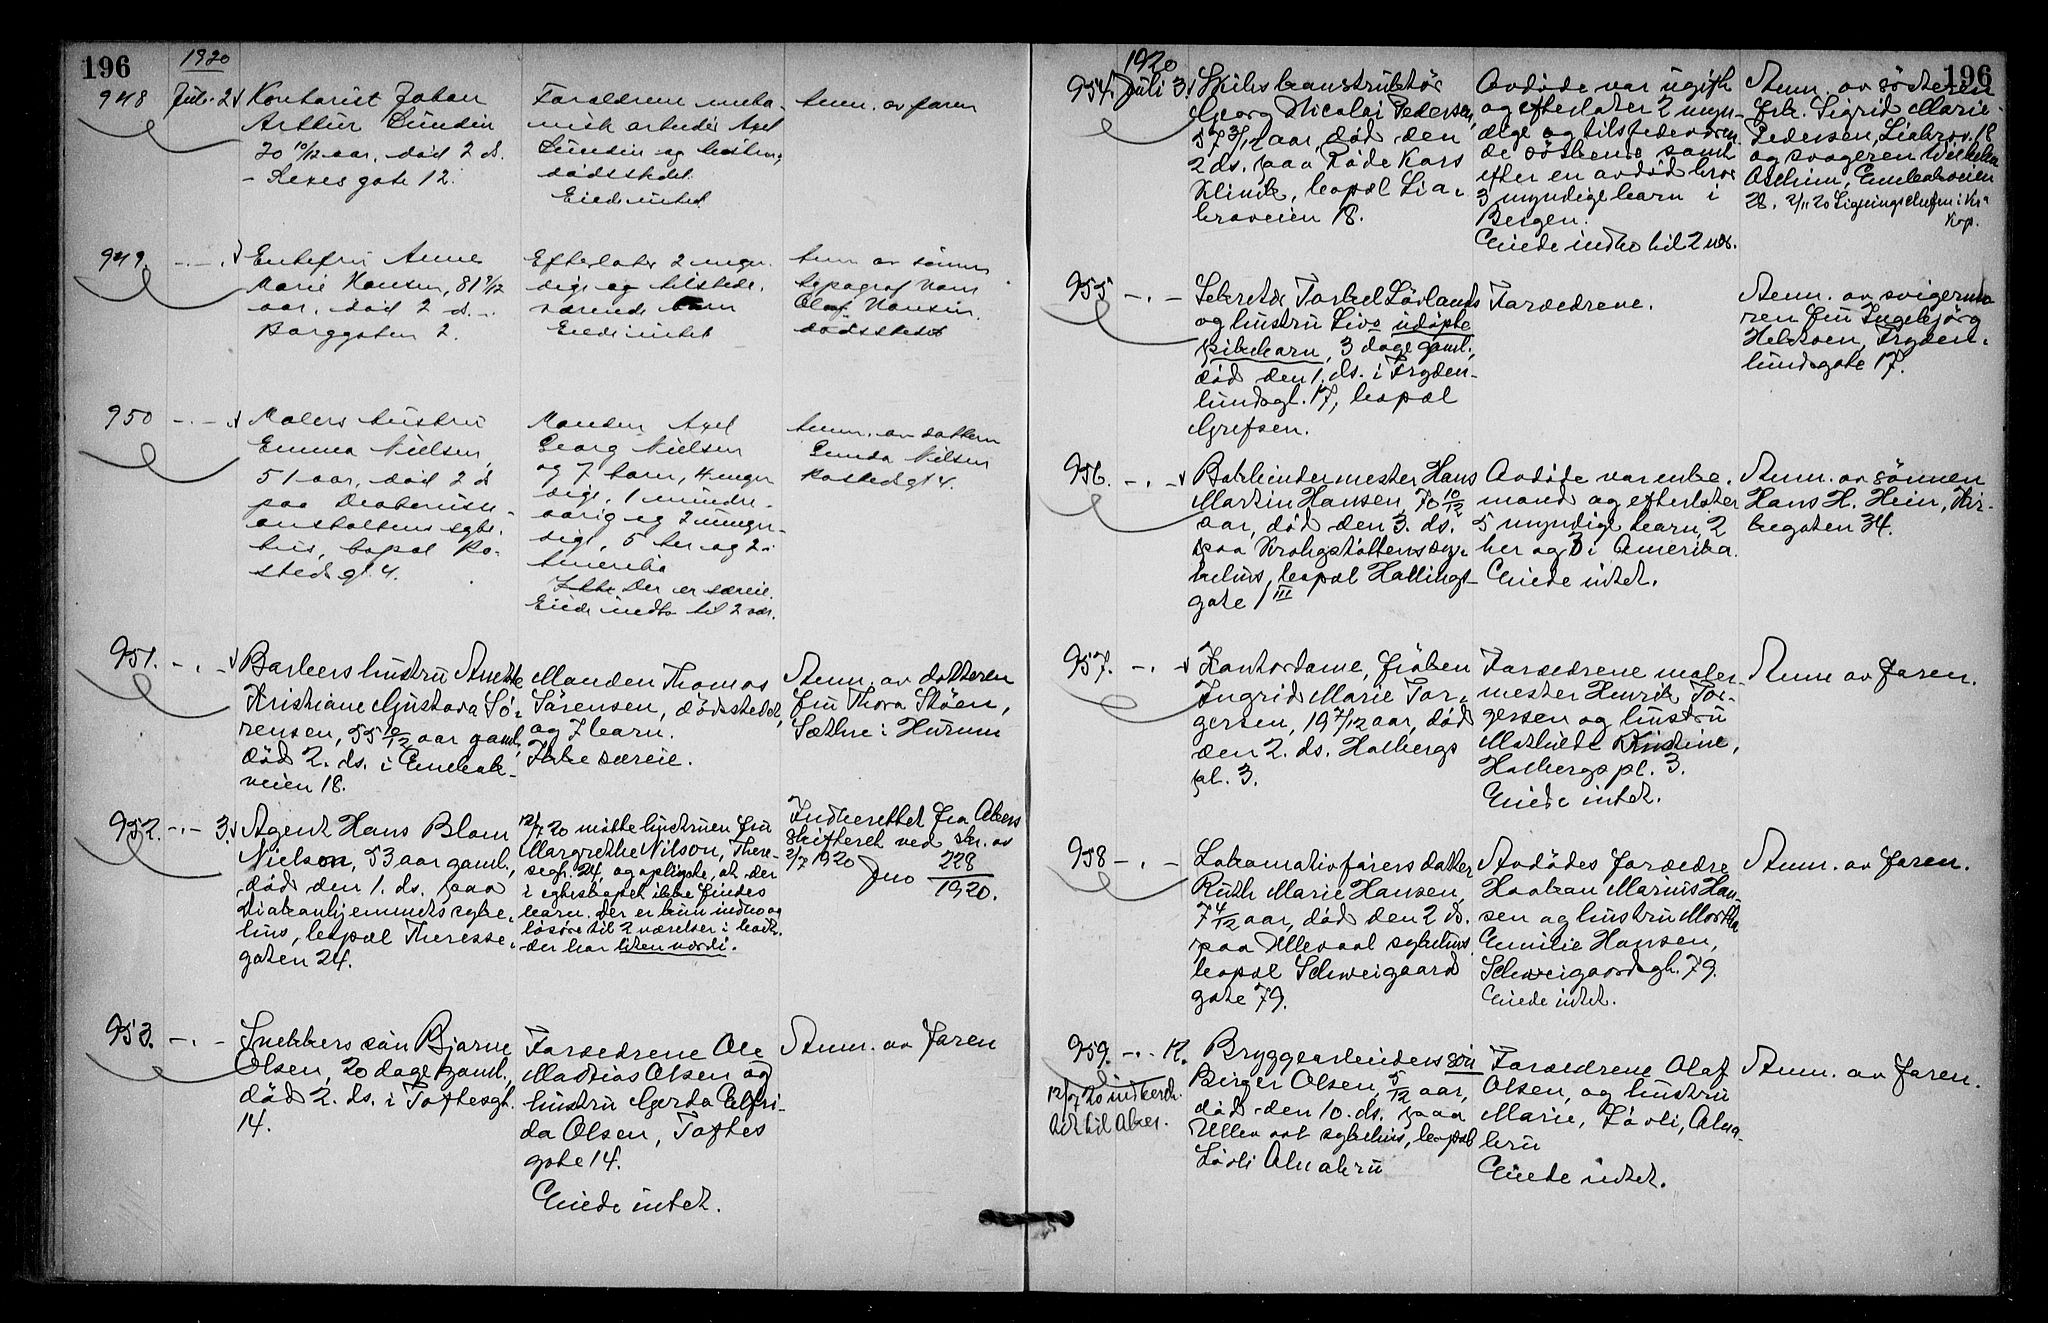 196
1920
948 Juli 2 Kontorist Johan
Arthur Lundin
20 10/12 aar, død 2 d.
- Keyes gate 12.
Forældrene meka-
nisk arbeider Axel
Lundin og hustru,
dødsstedet.
Eiede intet
Anm. av faren
949. -.- Enkefru Anne
Marie Hansen, 81 9/12
aar, død 2 d. -.
Borggaten 2.
Efterlater 2 myn-
dige og tilstede-
værende barn
Eiede intet
Anm av sønnen
typograf
Olaf Hansen,
dødsstedet
950 -.- Malers hustru
Emma Nielsen,
51 aar, død 2 d
paa Diakonisse-
anstaltens syke-
hus, bopæl Ro-
steds gt 4.
Manden Axel
Georg Nielsen
og 7 barn, 4 myn
dige, 1 mindre-
aarig og 2 umyn-
dige, 5 her og 2 i
Amerika
Ikke Der er særeie.
Eiede indbo til 2 vær.
Anm. av datteren
Gunda Nielsen
Rostedsgt 4.
951. -.- Barbers hustru Anette
Kristiane Gustava Sö-
rensen, 55 10/12 aar gaml,
död 2. ds. i Enebak-
veien 18.
Manden Thomas
Sörensen, dödsstedet,
og 7 barn.
Ikke særeie.
Anm. av datteren
fru Thora Stöen,
Sætre i Hurum
952. -.- 3. Agent Hans Blom
Nielson, 53 aar gaml.,
död den 1. ds. paa
Diakonhjemmets syke-
hus, bopæl Therese-
gaten 24.
12/7 20 mötte hustruen fru
Margrethe Nilson, There-
segt. 24, og oplyste, at der
i egteskapet ikke findes
barn. Der er kun indbo og
lösöre til 2 værelser i behold,
der har liten værdi.
Indberettet fra Akers
skifteret ved skr. av
2/7 1920 Jno 228
1920.
953. -.- Snekkers sön Bjarne
Olsen, 20 dage gaml.,
död 2. ds. i Toftesgt.
14.
Forældrene Ole
Mathias Olsen og
hustru Gerda Elfri-
da Olsen, Toftes
gate 14.
Eiede intet.
Anm. av faren
196
1920
954. Juli 3. Skibskonstruktör
Georg Nicolai Pedersen,
57 3/12 aar, död den
2 ds. paa Röde Kors
Klinik, bopæl Lia-
broveien 18.
Avdöde var ugift
og efterlater 2 myn-
dige og tilstedeværen-
de söskende samt
efter en avdöd bror
3 myndige barn i
Bergen.
Eiede indbo til 2 vær.
Anm. av sösteren
frk. Sigrid Marie
Pedersen, Liabrov. 18
og svogeren Wilhelm
Aschim, Enebakveien
28. 2/11 20 Ligningschefen i Kr.a
Kop.
955 -.- Sekretær Torkel Lövlands
og hustru Livs udöpte
pikebarn, 3 dage gaml.,
död den 1. ds. i Fryden-
lundsgt. 17, bopæl
Grefsen.
Forældrene.
Anm. av svigermo
ren fru Ingebjörg
Helstven, Fryden-
lundsgate 17.
956. -.- Bokbindermester Hans
Martin Hansen, 70 10/12
aar, död den 3. ds.
paa Krohgstöttens sy-
kehus, bopæl Hallings-
gate 1 III
Avdöde var enke-
mand og efterlater
5 myndige barn, 2
her og 3 i Amerika.
Eiede intet.
Anm. av sönnen
Hans H. Hein, Kir-
kegaten 34.
957. -.- Kontordame, fröken
Ingrid Marie Tor-
gersen, 19 7/12 aar, död
den 2. ds. Holbergs
pl. 3.
Forældrene maler-
mester Henrik Tor-
gersen og hustru
Mathilde Kristine,
Holbergs pl. 3.
Eiede intet.
Anm av faren.
958 -.- Lokomotivförers datter
Ruth Marie Hansen,
7 4/12 aar, död den 2 ds.
paa Ullevaal sykehus
bopæl Schweigaard
gate 79.
Avdödes forældre
Haakon Marius Han-
sen og hustru Martha
Emilie Hansen,
Schweigaardsgt. 79.
Eiede intet.
Anm. av faren.
959. -.- K. Bryggearbeiders sön
Birger Olsen, 5/12 aar,
död den 10. ds. paa
Ullevaal sykehus, bopæl
Lövli Alnabru
12/7 20 indberett
det til Aker.
Forældrene Olaf
Olsen, og hustru
Marie, Lövli, Alna-
bru
Eiede intet.
Anm. av faren.